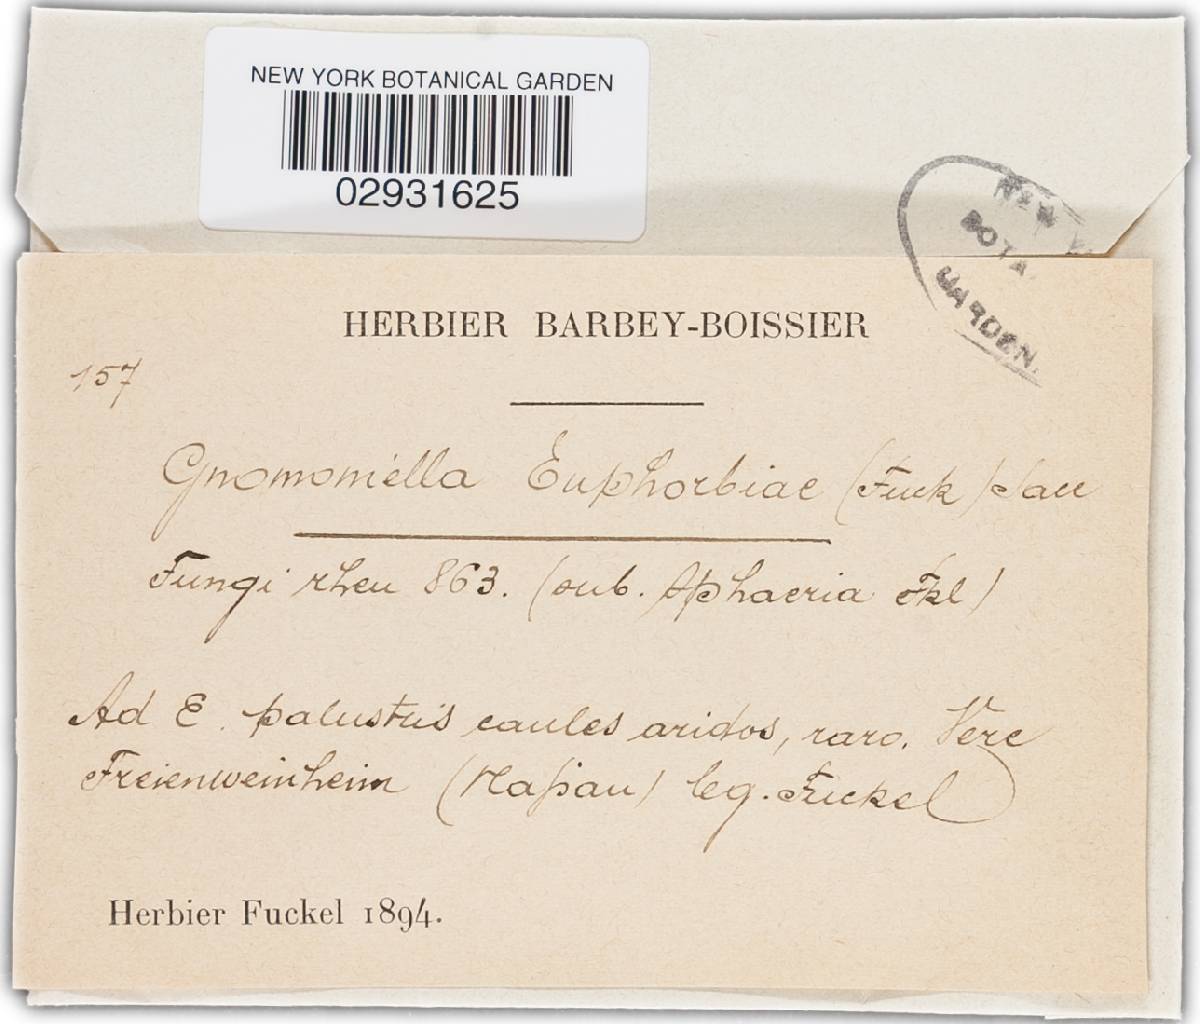 NEW YORK BOTANICAL GARDEN
02931625
NEW
BOTA
GARDEN.
HERBIER BARBEY-BOISSIER
157
Gnomoniella Euphorbiae (Fuck) Sacc
Fungi rhen 863. (sub. Sphaeria Fkl)
Ad E. palustris caules aridos, raro. Vere
Freienweinheim (Naſsau) leg. Fuckel
Herbier Fuckel 1894.